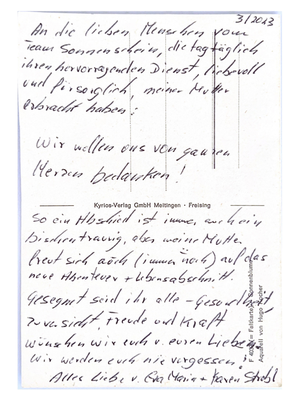 3/2013
An die lieben Menschen vom
Team Sonnenschein, die tagtäglich
ihren hervorragenden Dienst, liebevoll
und fürsorglich, meiner Mutter
erbracht haben:
Wir wollen uns von ganzem
Herzen bedanken!
Kyrios-Verlag GmbH Meitingen · Freising
So ein Abschied ist immer auch ein
bischen traurig, aber meine Mutter
freut sich auch (immer noch) auf das
neue Abenteuer + Lebensabschnitt.
Gesegnet seid ihr alle - Gesundheit,
Zuversicht, Freude und Kraft
wünschen wir euch v. euren Lieben.
Wir werden euch nie vergessen:
Alles Liebe v. Eva Maria + Karen
Aquarell von Hugo